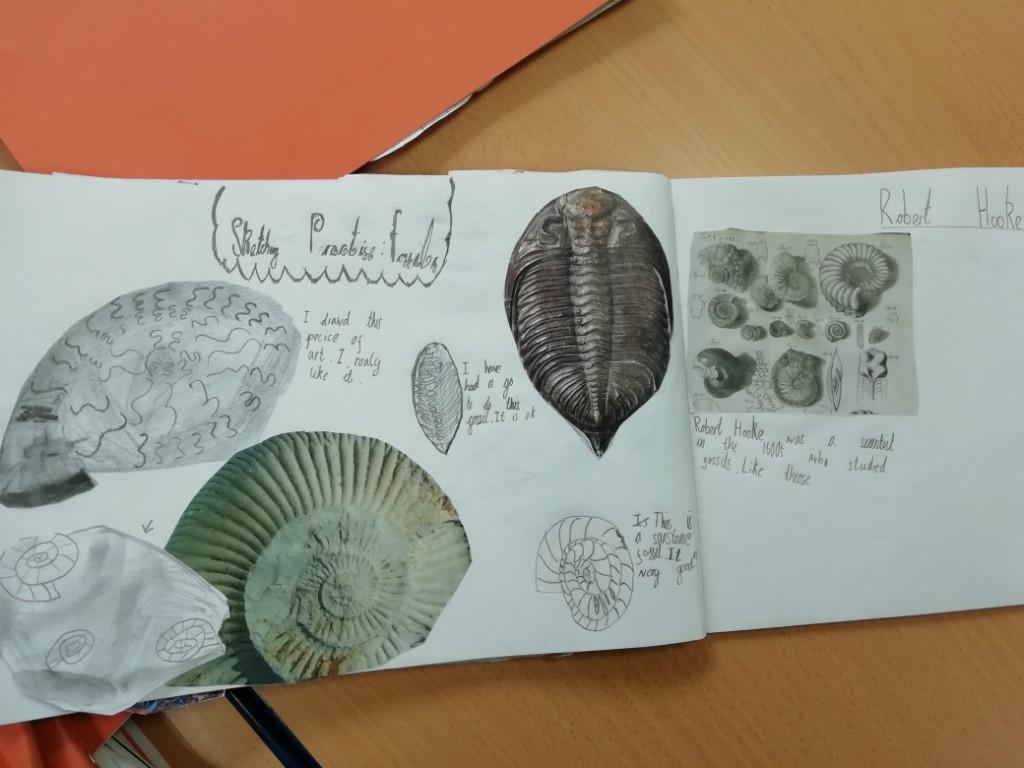 Sketchy Practise: Fossils
I drawd this
pecice of
art. I realy
like it.
I have
had a go
to do this
fossil. It is ok
Is This is
a
fossil It
very good
Robert Hooke
Robert Hooke was a scientist
in the 1600s who studied
fossils. Like theose